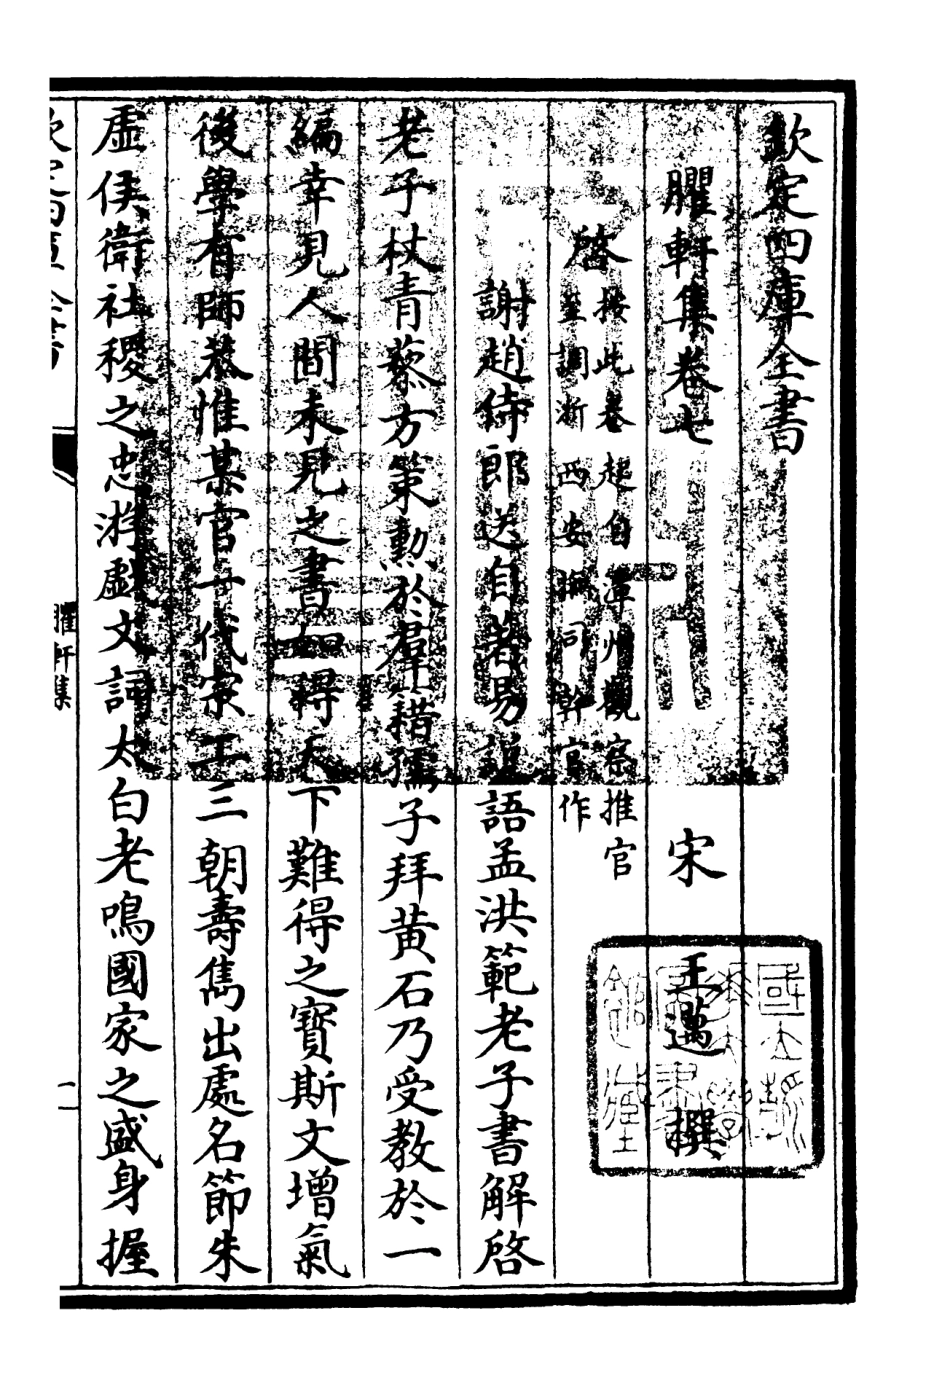 欽定四庫全書
臞軒集卷七
宋 王邁 撰
啓
按此卷起自潭州觀察推官
至調浙西安撫司幹官作
謝趙侍郎送自著易說語孟洪範老子書解啓
老子杖青藜方策勲於羣籍孺子拜黄石乃受教於一
編幸見人間未見之書如得天下難得之寶斯文增氣
後學有師恭惟某官一代宗工三朝壽雋出處名節朱
虛侯衛社稷之忠游戲文詞太白老鳴國家之盛身握
臞軒集
一